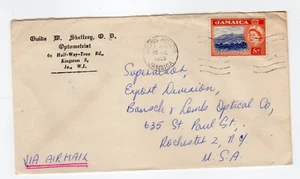 Ouida M. Sheffery, O. D.
Optometrist
6c Half-Way-Tree Rd,
Kingston 5,
Ja., W.I.
JAMAICA
8d
JAMAICA
Superadcon,
Export Division,
Bausch & Lomb Optical Co,
635 St Paul St.,
Rochester 2 N.Y
U.S.A.
VIA AIRMAIL